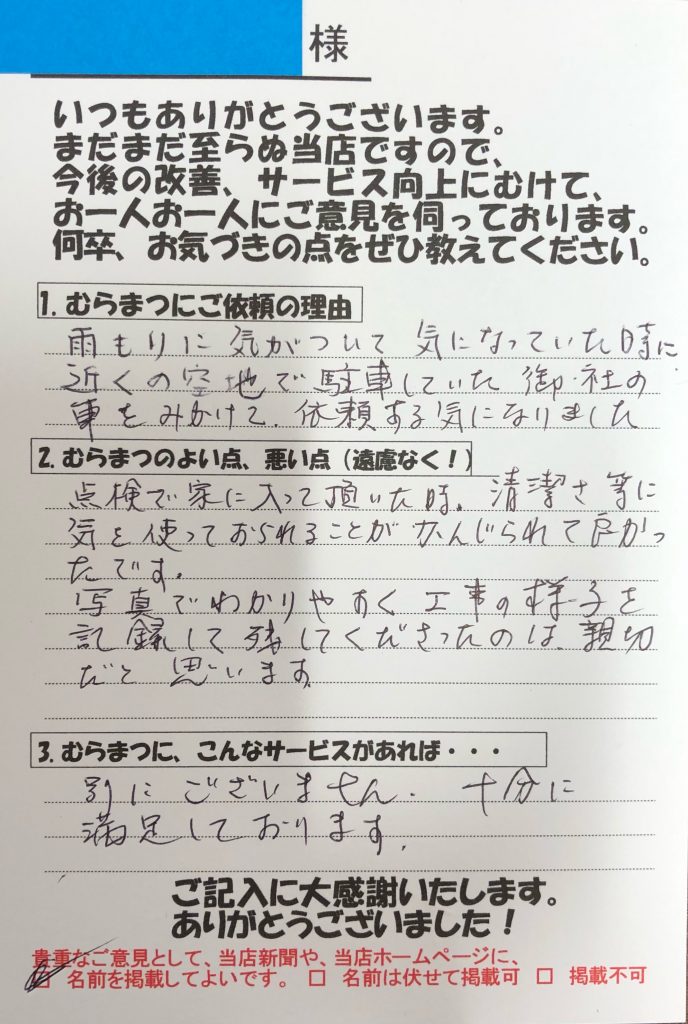 様
いつもありがとうございます。
まだまだ至らぬ当店ですので、
今後の改善、サービス向上にむけて、
お一人お一人にご意見を伺っております。
何卒、お気づきの点をぜひ教えてください。
1. むらまつにご依頼の理由
雨もりに気がついて 気になっていた時に
近くの空地で駐車していた 御社の
車をみかけて、依頼する気になりました
2. むらまつのよい点、悪い点（遠慮なく！）
点検で家に入って頂いた時、清潔さ等に
気を使っておられることがかんじられて良かっ
たです。
写真でわかりやすく工事の様子を
記録して残してくださったのは、親切
だと思います。
3. むらまつに、こんなサービスがあれば・・・
別にございません。 十分に
満足しております。
ご記入に大感謝いたします。
ありがとうございました！
貴重なご意見として、当店新聞や、当店ホームページに、
□ 名前を掲載してよいです。 □ 名前は伏せて掲載可 □ 掲載不可